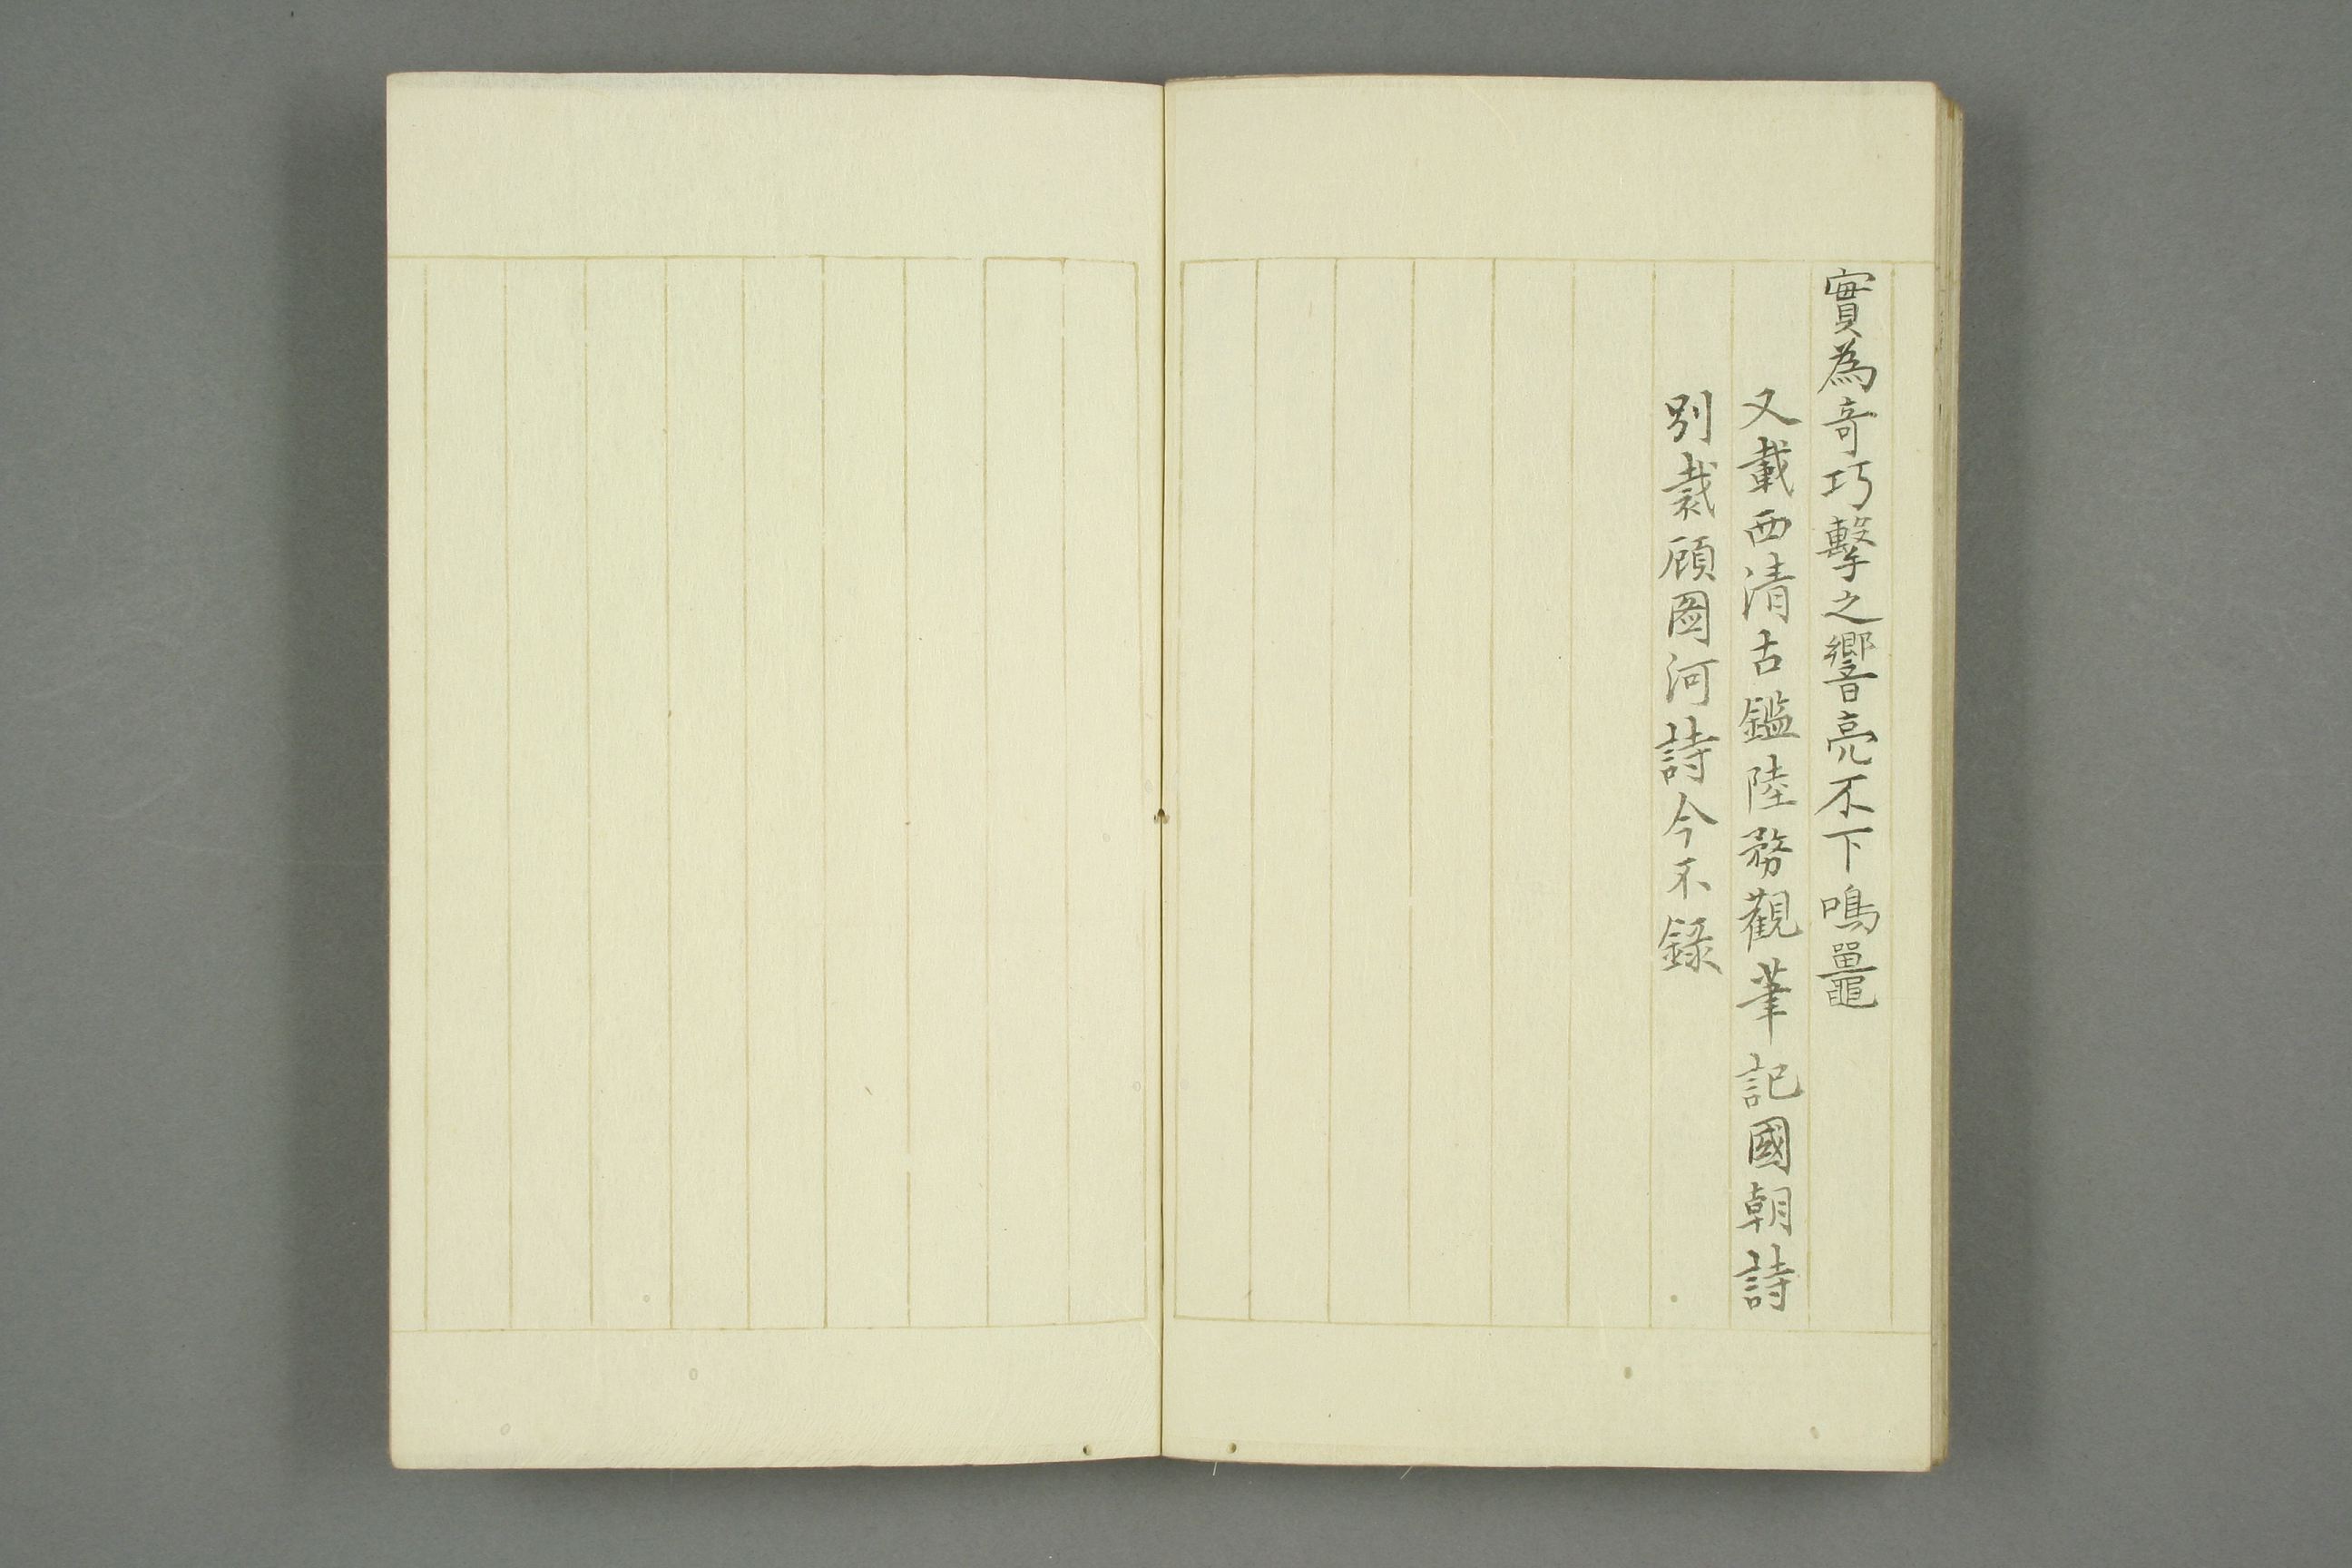 實為奇巧擊之響亮不下鳴鼉
又載西清古鑑陸務觀筆記國朝詩
別裁顧圖河詩今不錄